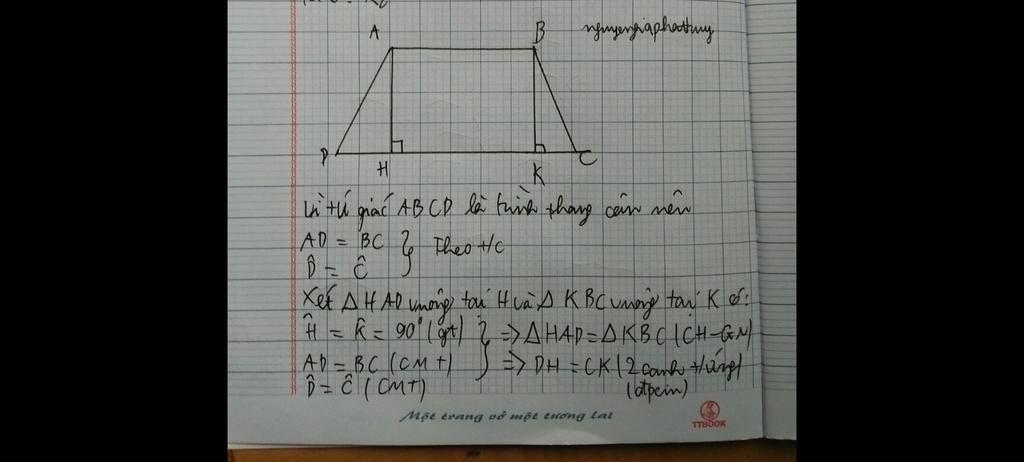 A
B
nguyengiaphathuy
D
H
K
C
Vì tứ giác ABCD là hình thang cân nên
AD = BC } Theo t/c
D̂ = Ĉ
Xét Δ HAD vuông tại H và Δ KBC vuông tại K có:
Ĥ = K̂ = 90° (gt) } => ΔHAD = ΔKBC (CH-GN)
AD = BC (CMT) => DH = CK (2 cạnh t/ứng)
D̂ = Ĉ (CMT) (đpcm)
Một trang vở một tương lai
TTBOOK